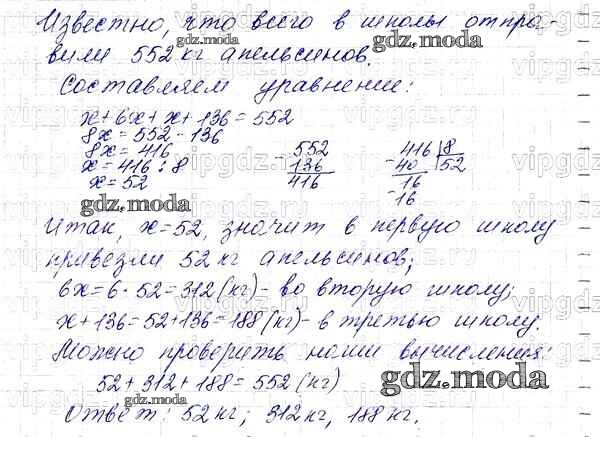 Известно, что всего в школы отпра-
вили 552 кг апельсинов.
Составляем уравнение:
x + 6x + x + 136 = 552
8x = 552 - 136
8x = 416
x = 416 : 8
x = 52
- 552
136
416
- 416 | 8
40 | 52
- 16
16
gdz.moda
Итак, x = 52, значит в первую школу
привезли 52 кг апельсинов;
6x = 6 · 52 = 312 (кг) - во вторую школу;
x + 136 = 52 + 136 = 188 (кг) - в третью школу.
Можно проверить наши вычисления:
52 + 312 + 188 = 552 (кг)
gdz.moda
Ответ: 52 кг; 312 кг, 188 кг.
gdz.moda
gdz.moda
vipgdz.ru